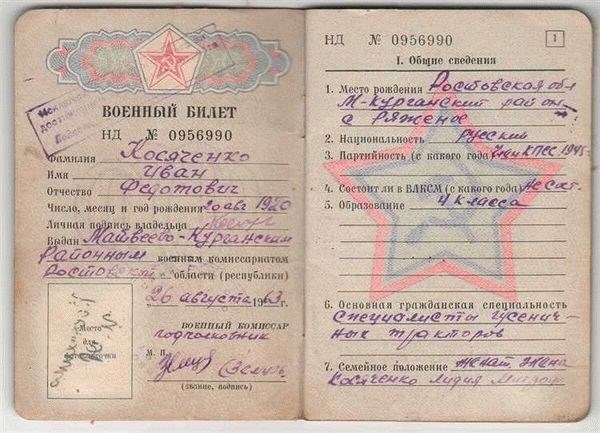 ВОЕННЫЙ БИЛЕТ
НД № 0956990
Фамилия Косяченко
Имя Иван
Отчество Федотович
Число, месяц и год рождения 20 авг 1920
Личная подпись владельца
Выдан Матвеево-Курганским
районным военным комиссариатом
Ростовской области (республики)
26 августа 1963 г.
Место
для
ВОЕННЫЙ КОМИССАР
подполковник
М. П.
(звание, подпись)
НД № 0956990
1
I. Общие сведения
1. Место рождения Ростовская обл
М-Курганский район
с Ряженое
2. Национальность русский
3. Партийность (с какого года) КПСС 1945
4. Состоит ли в ВЛКСМ (с какого года) Не сост.
5. Образование 4 класса
6. Основная гражданская специальность
специалисты гусенич-
ных тракторов
7. Семейное положение женат, жена
Косяченко Лидия